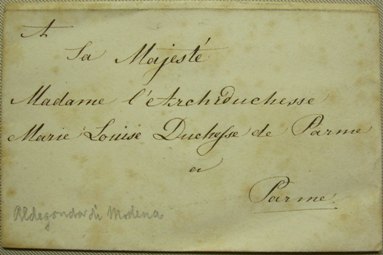 A
Sa Majesté
Madame l'Archiduchesse
Marie Louise Duchesse de Parme
a
Parme.
Aldegonda di Modena